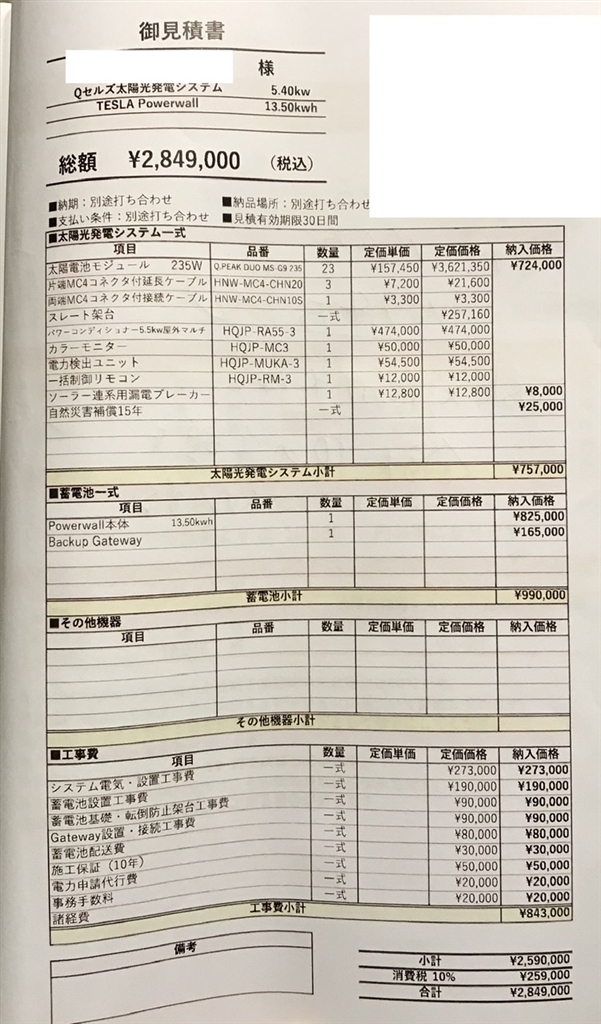 御見積書
様
Qセルズ太陽光発電システム 5.40kw
TESLA Powerwall 13.50kwh
総額 ¥2,849,000 (税込)
■納期：別途打ち合わせ ■納品場所：別途打ち合わせ
■支払い条件：別途打ち合わせ ■見積有効期限30日間
■太陽光発電システム一式
項目 品番 数量 定価単価 定価価格 納入価格
太陽電池モジュール 235W Q.PEAK DUO MS-G9 235 23 ¥157,450 ¥3,621,350 ¥724,000
片端MC4コネクタ付延長ケーブル HNW-MC4-CHN20 3 ¥7,200 ¥21,600
両端MC4コネクタ付接続ケーブル HNW-MC4-CHN10S 1 ¥3,300 ¥3,300
スレート架台 一式 ¥257,160
パワーコンディショナー5.5kw屋外マルチ HQJP-RA55-3 1 ¥474,000 ¥474,000
カラーモニター HQJP-MC3 1 ¥50,000 ¥50,000
電力検出ユニット HQJP-MUKA-3 1 ¥54,500 ¥54,500
一括制御リモコン HQJP-RM-3 1 ¥12,000 ¥12,000
ソーラー連系用漏電ブレーカー 1 ¥12,800 ¥12,800 ¥8,000
自然災害補償15年 一式 ¥25,000
太陽光発電システム小計 ¥757,000
■蓄電池一式
項目 品番 数量 定価単価 定価価格 納入価格
Powerwall本体 13.50kwh 1 ¥825,000
Backup Gateway 1 ¥165,000
蓄電池小計 ¥990,000
■その他機器
項目 品番 数量 定価単価 定価価格 納入価格
その他機器小計
■工事費
項目 数量 定価単価 定価価格 納入価格
システム電気・設置工事費 一式 ¥273,000 ¥273,000
蓄電池設置工事費 一式 ¥190,000 ¥190,000
蓄電池基礎・転倒防止架台工事費 一式 ¥90,000 ¥90,000
Gateway設置・接続工事費 一式 ¥90,000 ¥90,000
蓄電池配送費 一式 ¥80,000 ¥80,000
施工保証（10年） 一式 ¥30,000 ¥30,000
電力申請代行費 一式 ¥50,000 ¥50,000
事務手数料 一式 ¥20,000 ¥20,000
諸経費 一式 ¥20,000 ¥20,000
工事費小計 ¥843,000
備考
小計 ¥2,590,000
消費税 10% ¥259,000
合計 ¥2,849,000